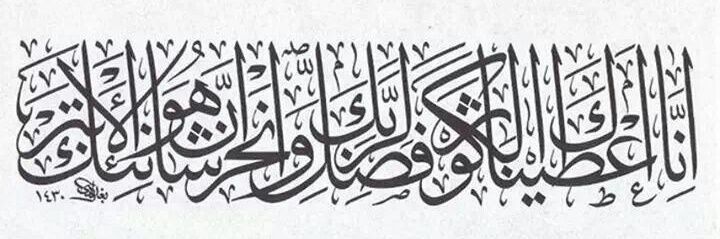 إِنَّا أَعْطَيْنَاكَ الْكَوْثَرَ فَصَلِّ لِرَبِّكَ وَانْحَرْ إِنَّ شَانِئَكَ هُوَ الْأَبْتَرُ
١٤٣٠